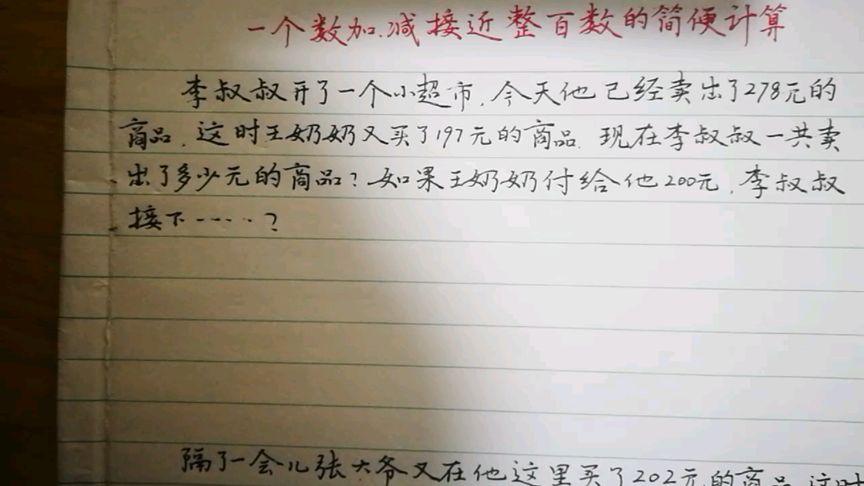 一个数加.减接近整百数的简便计算
李叔叔开了一个小超市,今天他已经卖出了278元的
商品,这时王奶奶又买了197元的商品.现在李叔叔一共卖
出了多少元的商品?如果王奶奶付给他200元,李叔叔
接下……?
隔了一会儿张大爷又在他这里买了202元的商品,这时